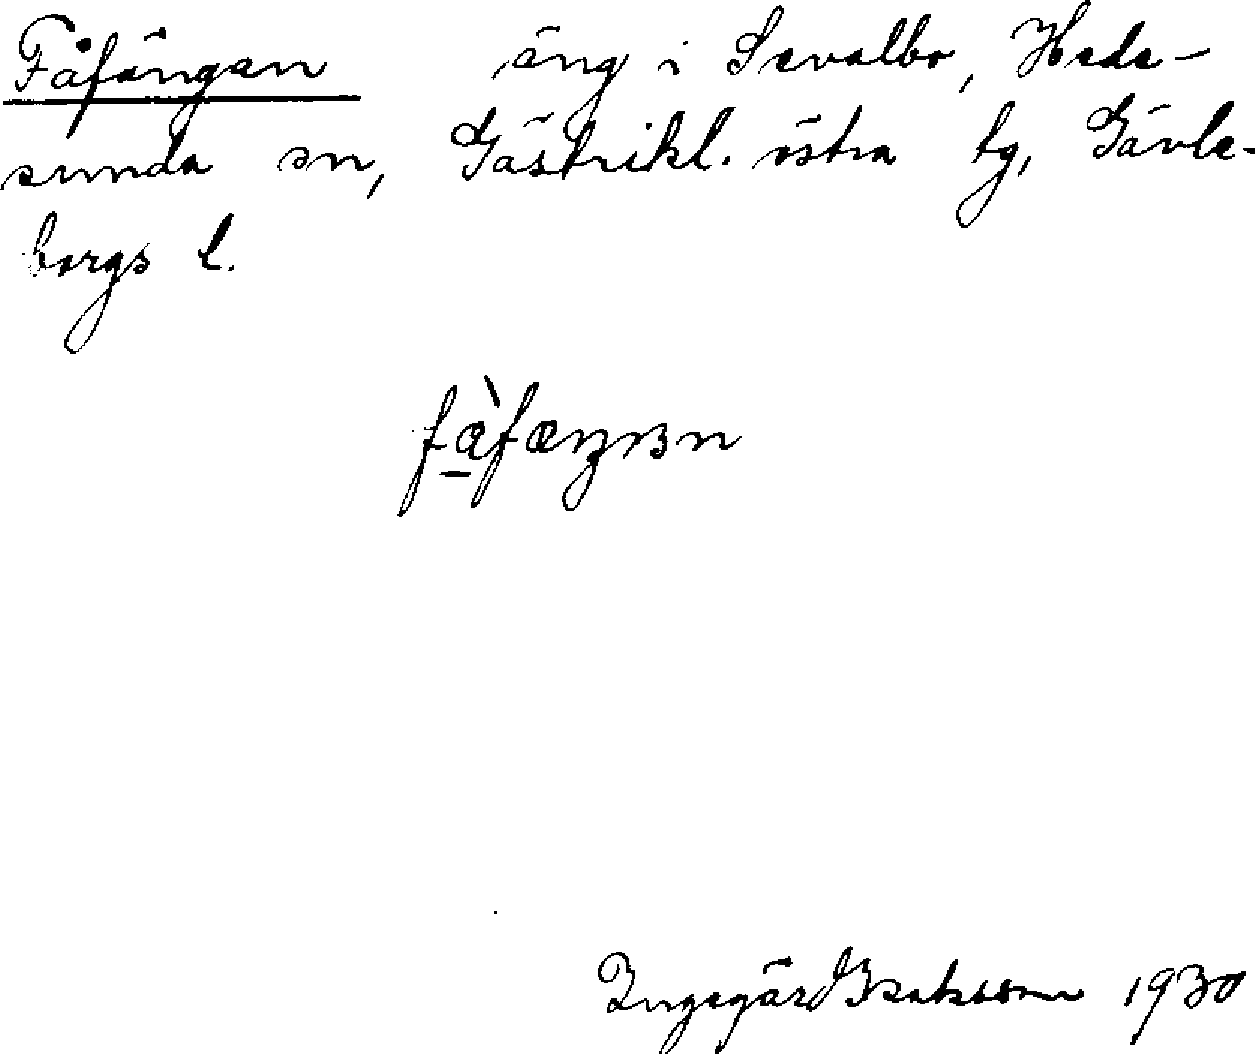 Fåfängan äng i Sevalbo, Hede-
sunda sn, Gästrikl. östra tg, Gävle-
borgs l.
Ingegärd Isaksson 1930